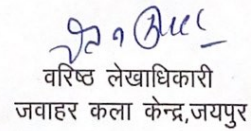 वरिष्ठ लेखाधिकारी
जवाहर कला केन्द्र,जयपुर